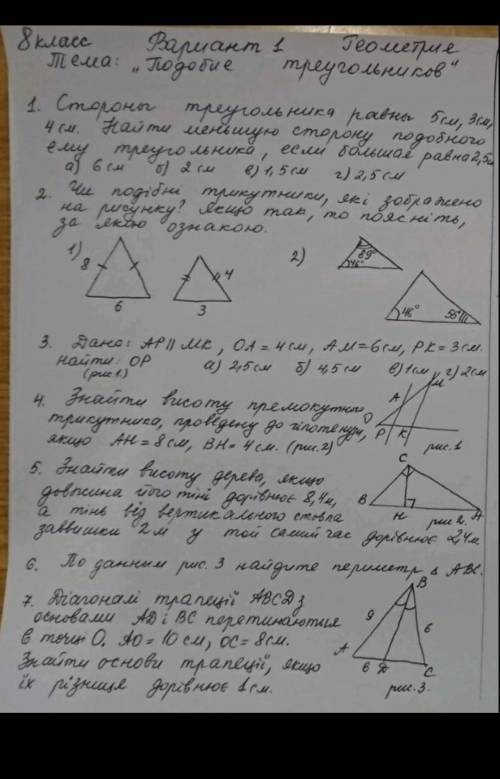 8 класс Вариант 1 Геометрия
Тема: „Подобие треугольников“
1. Стороны треугольника равны 5 см, 3 см,
4 см. Найти меньшую сторону подобного
ему треугольника, если большая равна 2,5 см
а) 6 см б) 2 см в) 1,5 см г) 2,5 см
2. Чи подібні трикутники, які зображено
на рисунку? Якщо так, то поясніть,
за якою ознакою.
1) 8 6 4 3 2) 89° 46° 46° 55°
3. Дано: AP || MK, OA = 4 см, AM = 6 см, PK = 3 см.
найти: OP а) 2,5 см б) 4,5 см в) 1 см г) 2 см
(рис 1)
4. Знайти висоту прямокутного
трикутника, проведену до гіпотенузи,
якщо AH = 8 см, BH = 4 см. (рис. 2)
O A M P K рис. 1
5. Знайти висоту дерева, якщо
довжина його тіні дорівнює 8,4 м,
а тінь від вертикального стовпа
заввишки 2 м у той самий час дорівнює 2,4 м.
C B H A рис 2.
6. По данным рис. 3 найдите периметр Δ ABC.
7. Діагоналі трапеції ABCD з
основами AD і BC перетинаються
в точці O. AO = 10 см, OC = 8 см.
Знайти основи трапеції, якщо
їх різниця дорівнює 1 см.
B 9 6 A 6 D C рис. 3.